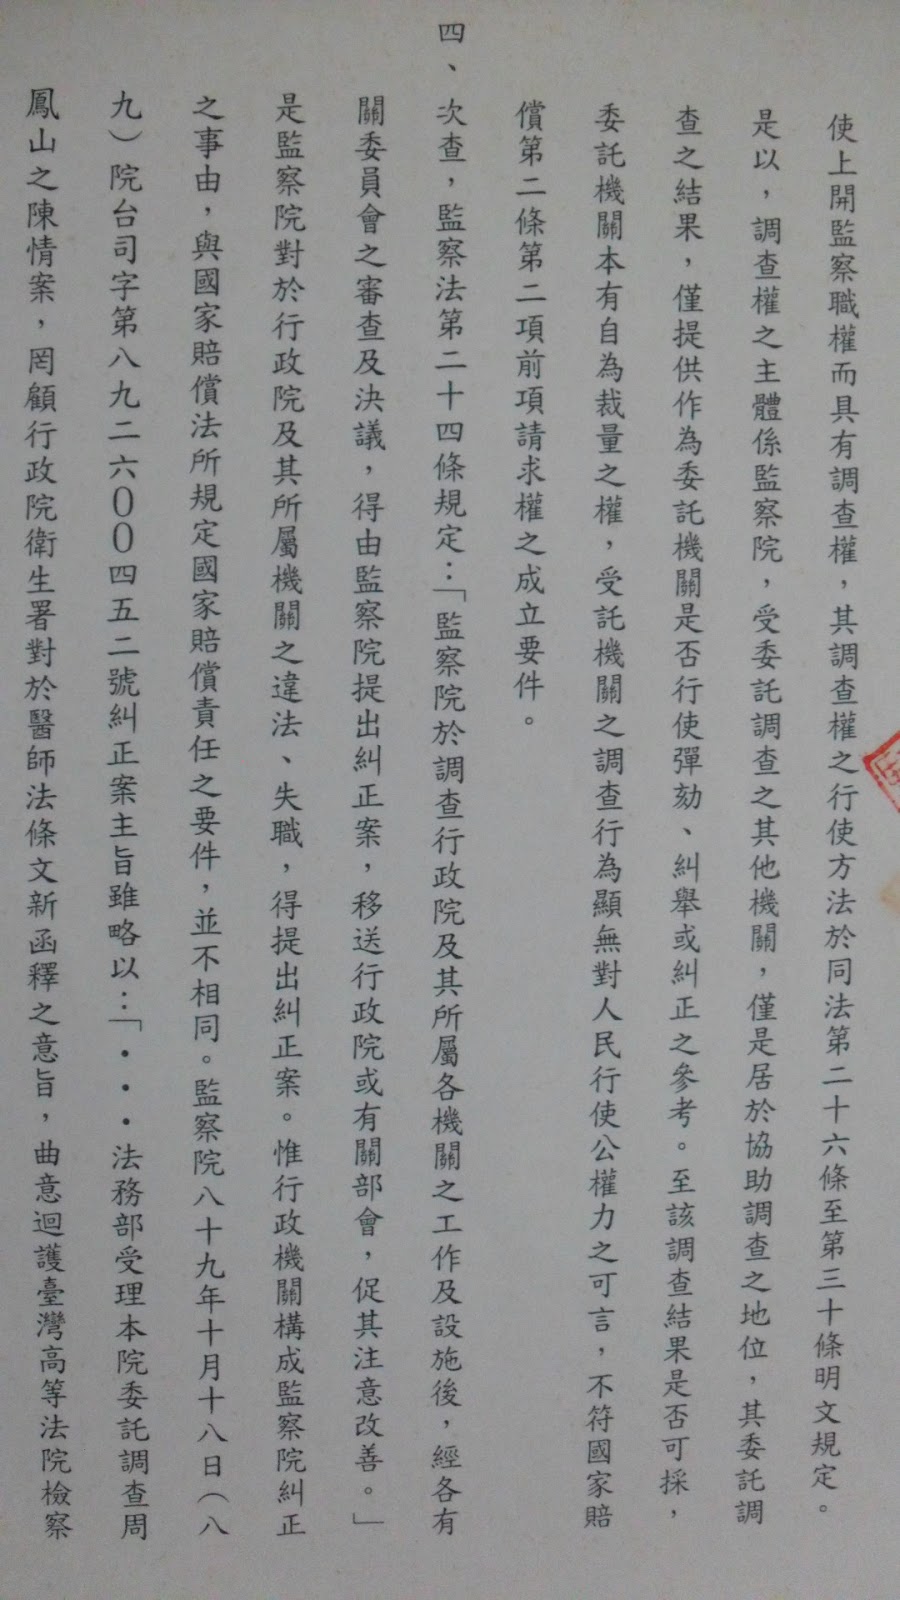 使上開監察職權而具有調查權，其調查權之行使方法於同法第二十六條至第三十條明文規定。
是以，調查權之主體係監察院，受委託調查之其他機關，僅是居於協助調查之地位，其委託調
查之結果，僅提供作為委託機關是否行使彈劾、糾舉或糾正之參考。至該調查結果是否可採，
委託機關本有自為裁量之權，受託機關之調查行為顯無對人民行使公權力之可言，不符國家賠
償第二條第二項前項請求權之成立要件。
四、次查，監察法第二十四條規定：「監察院於調查行政院及其所屬各機關之工作及設施後，經各有
關委員會之審查及決議，得由監察院提出糾正案，移送行政院或有關部會，促其注意改善。」
是監察院對於行政院及其所屬機關之違法、失職，得提出糾正案。惟行政機關構成監察院糾正
之事由，與國家賠償法所規定國家賠償責任之要件，並不相同。監察院八十九年十月十八日（八
九）院台司字第八九二六００四五二號糾正案主旨雖略以：「・・・法務部受理本院委託調查周
鳳山之陳情案，罔顧行政院衛生署對於醫師法條文新函釋之意旨，曲意迴護臺灣高等法院檢察